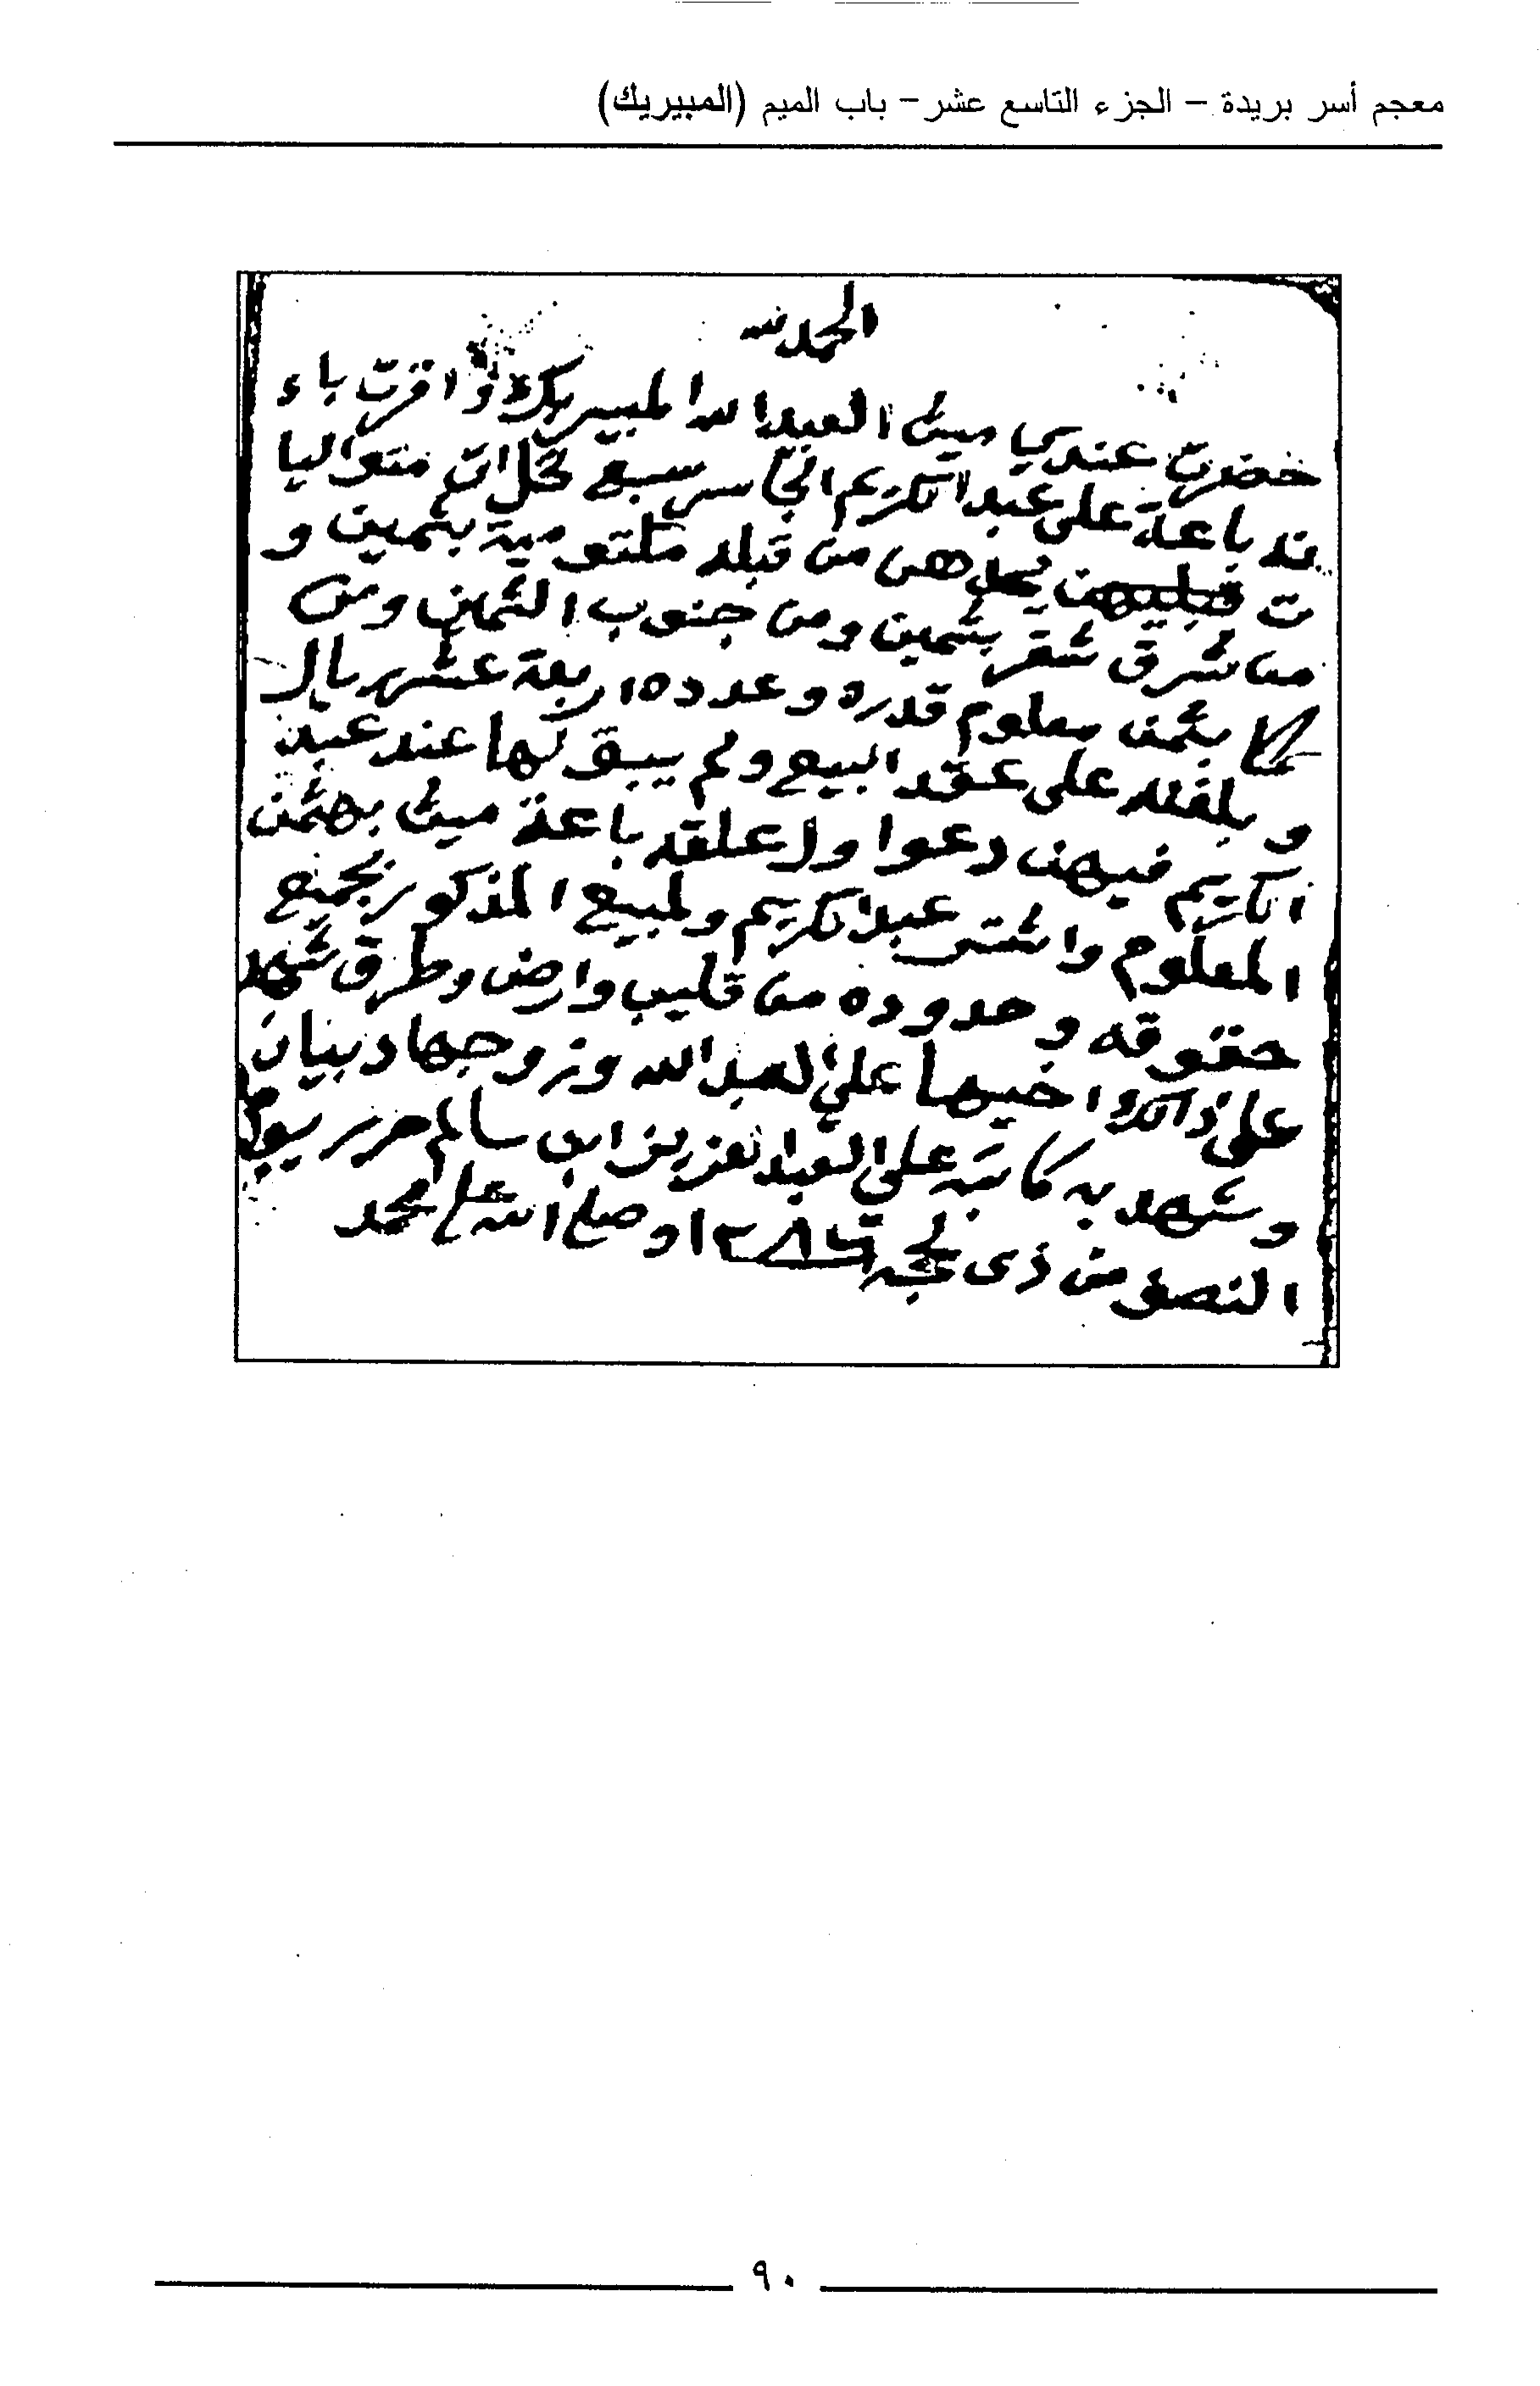 معجم أسر بريدة – الجزء التاسع عشر – باب الميم (المبيريك)
الحمد لله
حضرت عندي ميثى العبدالله المبيريك واقرت باء
نه باعة على عبدالكريم الجاسر سبع نخلات متواليا
ت قبليهن يحدهن من قبله مكتوميه بثمين و
من شرق شقر بثمين ومن جنوب الثمان ومن
بثمن معلوم قدره وعدده اربعة عشر ريال
و بلغنه على عقد البيع ولم يبق لها عند عبد
الكريم فيهن دعوا ولا علقه باعة ميثى بهثمن
المعلوم واشترى عبدالكريم ولمبيع المذكور بجميع
حقوقه وحدوده من قليب وارض وطرق شهد
على ذالك اخيها علي العبدالله وزوجها دبيان
وشهد به كاتبه علي العبد لعزيز ابن سالم حرر يوم
النصف من ذي لحجه ١٢٨٦ وصلى الله على محمد
٩٠